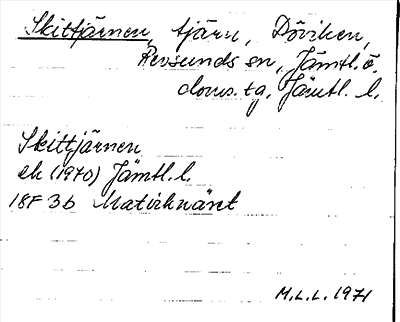 Skittjärnen, tjärn, Döviken,
Revsunds sn, Jämtl. ö.
doms. tg, Jämtl. l.
Skittjärnen
ek (1970) Jämtl. l.
18F 3b Matviknäset
M.L.L. 1971